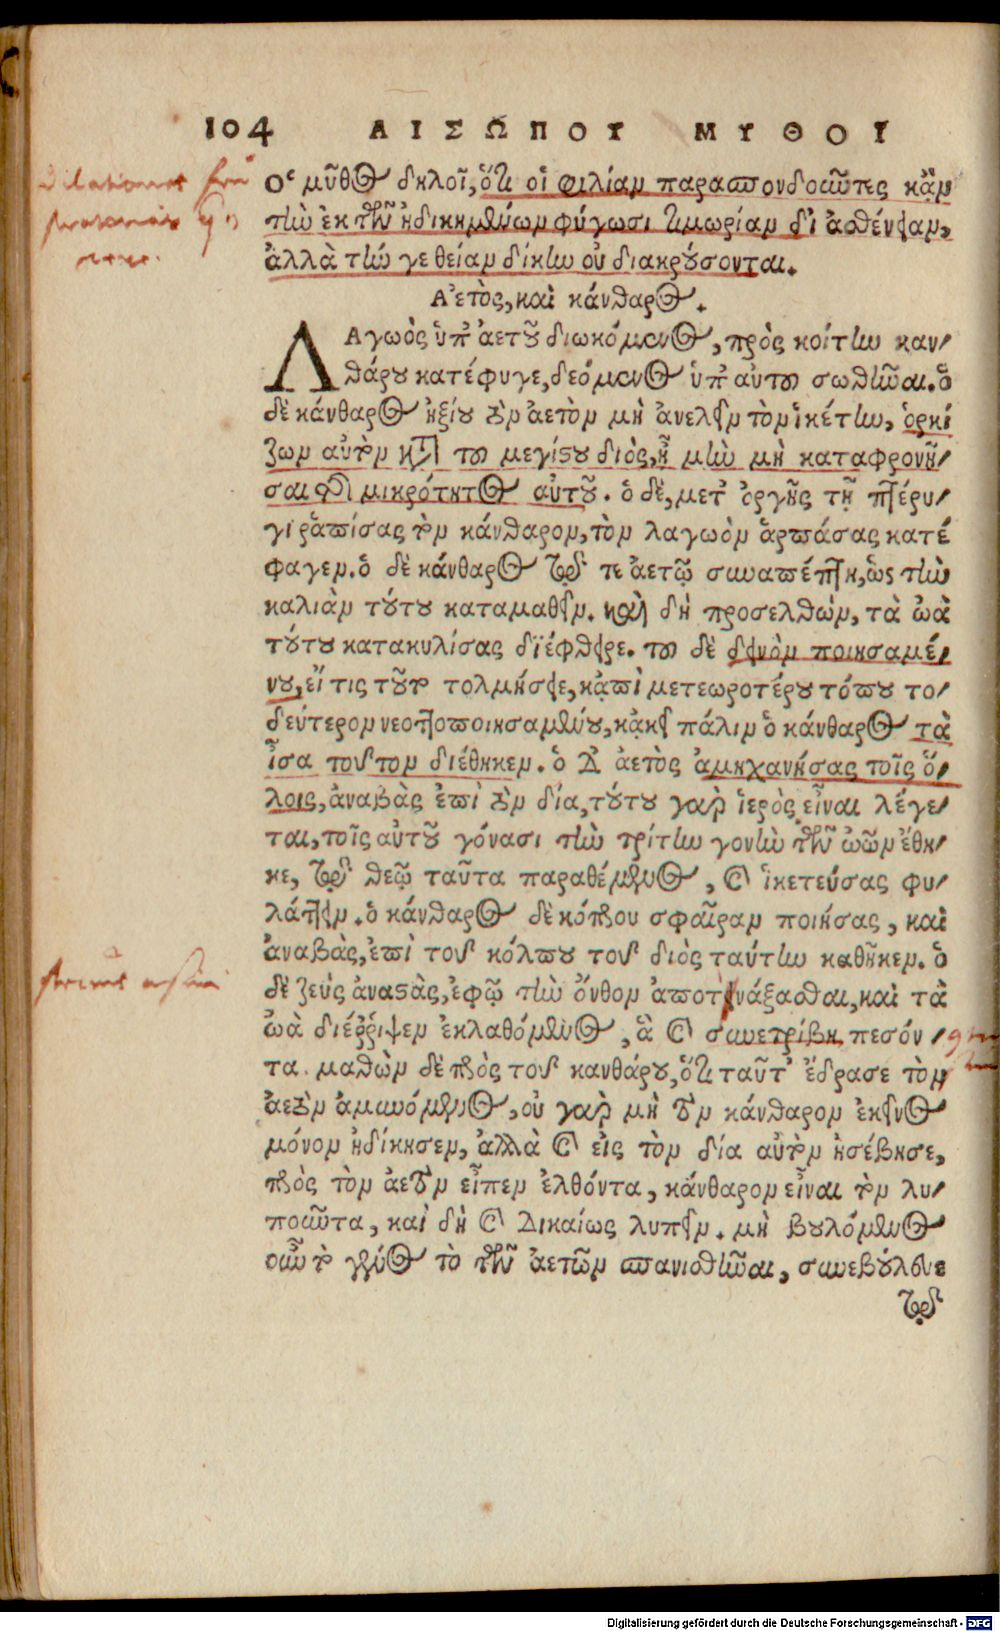 104 ΑΙΣΩΠΟΥ ΜΥΘΟΙ
Ὁ μῦθος δηλοῖ, ὅτι οἱ φιλίαν παρασπονδοῦντες κἂν
τὴν ἐκ τῶν ἠδικημένων φύγωσι τιμωρίαν δι' ἀσθένειαν,
ἀλλὰ τήν γε θείαν δίκην οὐ διακρούσονται.
Ἀετὸς, καὶ κάνθαρος.
ΛΑγωὸς ὑπ' ἀετοῦ διωκόμενος, πρὸς κοίτην καν-
θάρου κατέφυγε, δεόμενος ὑπ' αὐτοῦ σωθῆναι. ὁ
δὲ κάνθαρος ἠξίου τὸν ἀετὸν μὴ ἀνελεῖν τὸν ἱκέτην, ὁρκί
ζων αὐτὸν κατὰ τοῦ μεγίστου διὸς, ἦ μὴν μὴ καταφρονῆ-
σαι τῆς μικρότητος αὐτοῦ. ὁ δὲ, μετ' ὀργῆς τῇ πτέρυ-
γι ῥαπίσας τὸν κάνθαρον, τὸν λαγωὸν ἁρπάσας κατέ
φαγεν. ὁ δὲ κάνθαρος τῷ τε ἀετῷ συναπέπτη, ὡς τὴν
καλιὰν τούτου καταμαθεῖν. καὶ δὴ προσελθών, τὰ ὠὰ
τούτου κατακυλίσας διέφθειρε. τοῦ δὲ δεινὸν ποιησαμέ-
νου, εἴ τις τοῦτο τολμήσειε, κἀπὶ μετεωροτέρου τόπου το-
δεύτερον νεοττοποιησαμένου, κἀκεῖ πάλιν ὁ κάνθαρος τὰ
ἶσα τοῦτον διέθηκεν. ὁ δ' ἀετὸς ἀμηχανήσας τοῖς ὅ-
λοις, ἀναβὰς ἐπὶ τὸν δία, τούτου γὰρ ἱερὸς εἶναι λέγε-
ται, τοῖς αὐτοῦ γόνασι τὴν τρίτην γονὴν τῶν ὠῶν ἔθη-
κε, τῷ θεῷ ταῦτα παραθέμενος, καὶ ἱκετεύσας φυ-
λάττειν. ὁ κάνθαρος δὲ κόπρου σφαῖραν ποιήσας, καὶ
ἀναβὰς, ἐπὶ τοῦ κόλπου τοῦ διὸς ταύτην καθῆκεν. ὁ
δὲ ζεὺς ἀναστὰς, ἐφ' ᾧ τὴν ὄνθον ἀποτινάξασθαι, καὶ τὰ
ὠὰ διέῤῥιψεν ἐκλαθόμενος, ἃ καὶ συνετρίβη πεσόν-
τα. μαθὼν δὲ πρὸς τοῦ κανθάρου, ὅτι ταῦτ' ἔδρασε τὸν
ἀετὸν ἀμυνόμενος, οὐ γὰρ μὴ τὸν κάνθαρον ἐκεῖνος
μόνον ἠδίκησεν, ἀλλὰ καὶ εἰς τὸν δία αὐτὸν ἠσέβησε,
πρὸς τὸν ἀετὸν εἶπεν ἐλθόντα, κάνθαρον εἶναι τὸν λυ-
ποῦντα, καὶ δὴ καὶ δικαίως λυπεῖν. μὴ βουλόμενος
οὖν τὸ γένος τὸ τῶν ἀετῶν σπανισθῆναι, συνεβούλευε
τῷ
Digitalisierung gefördert durch die Deutsche Forschungsgemeinschaft - DFG